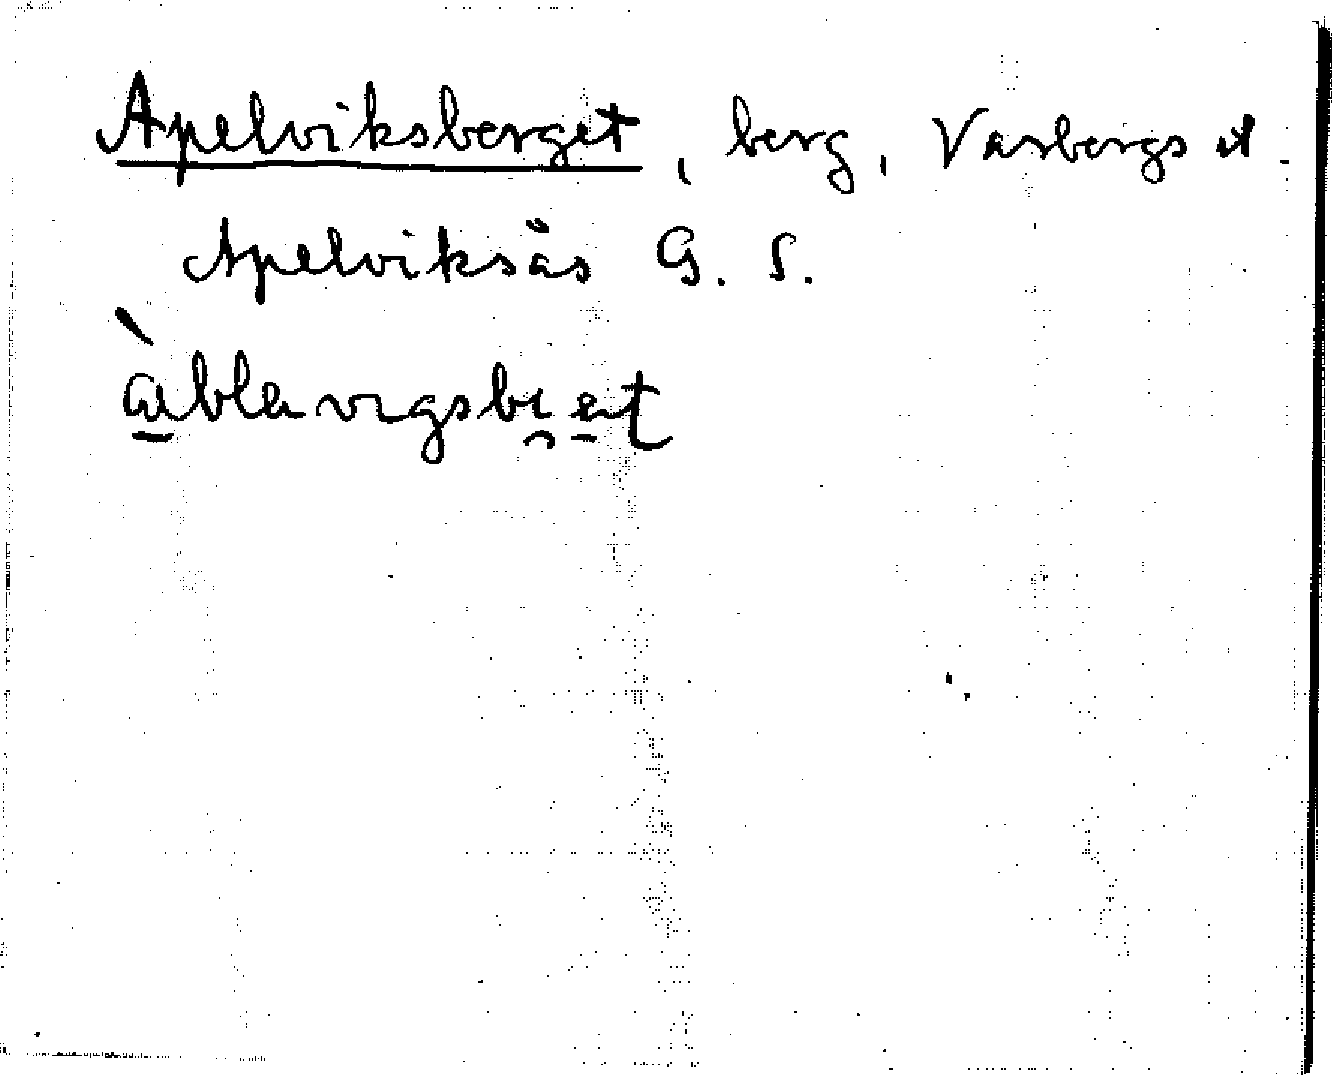 Apelviksberget, berg, Varbergs st.
Apelviksås G. S.